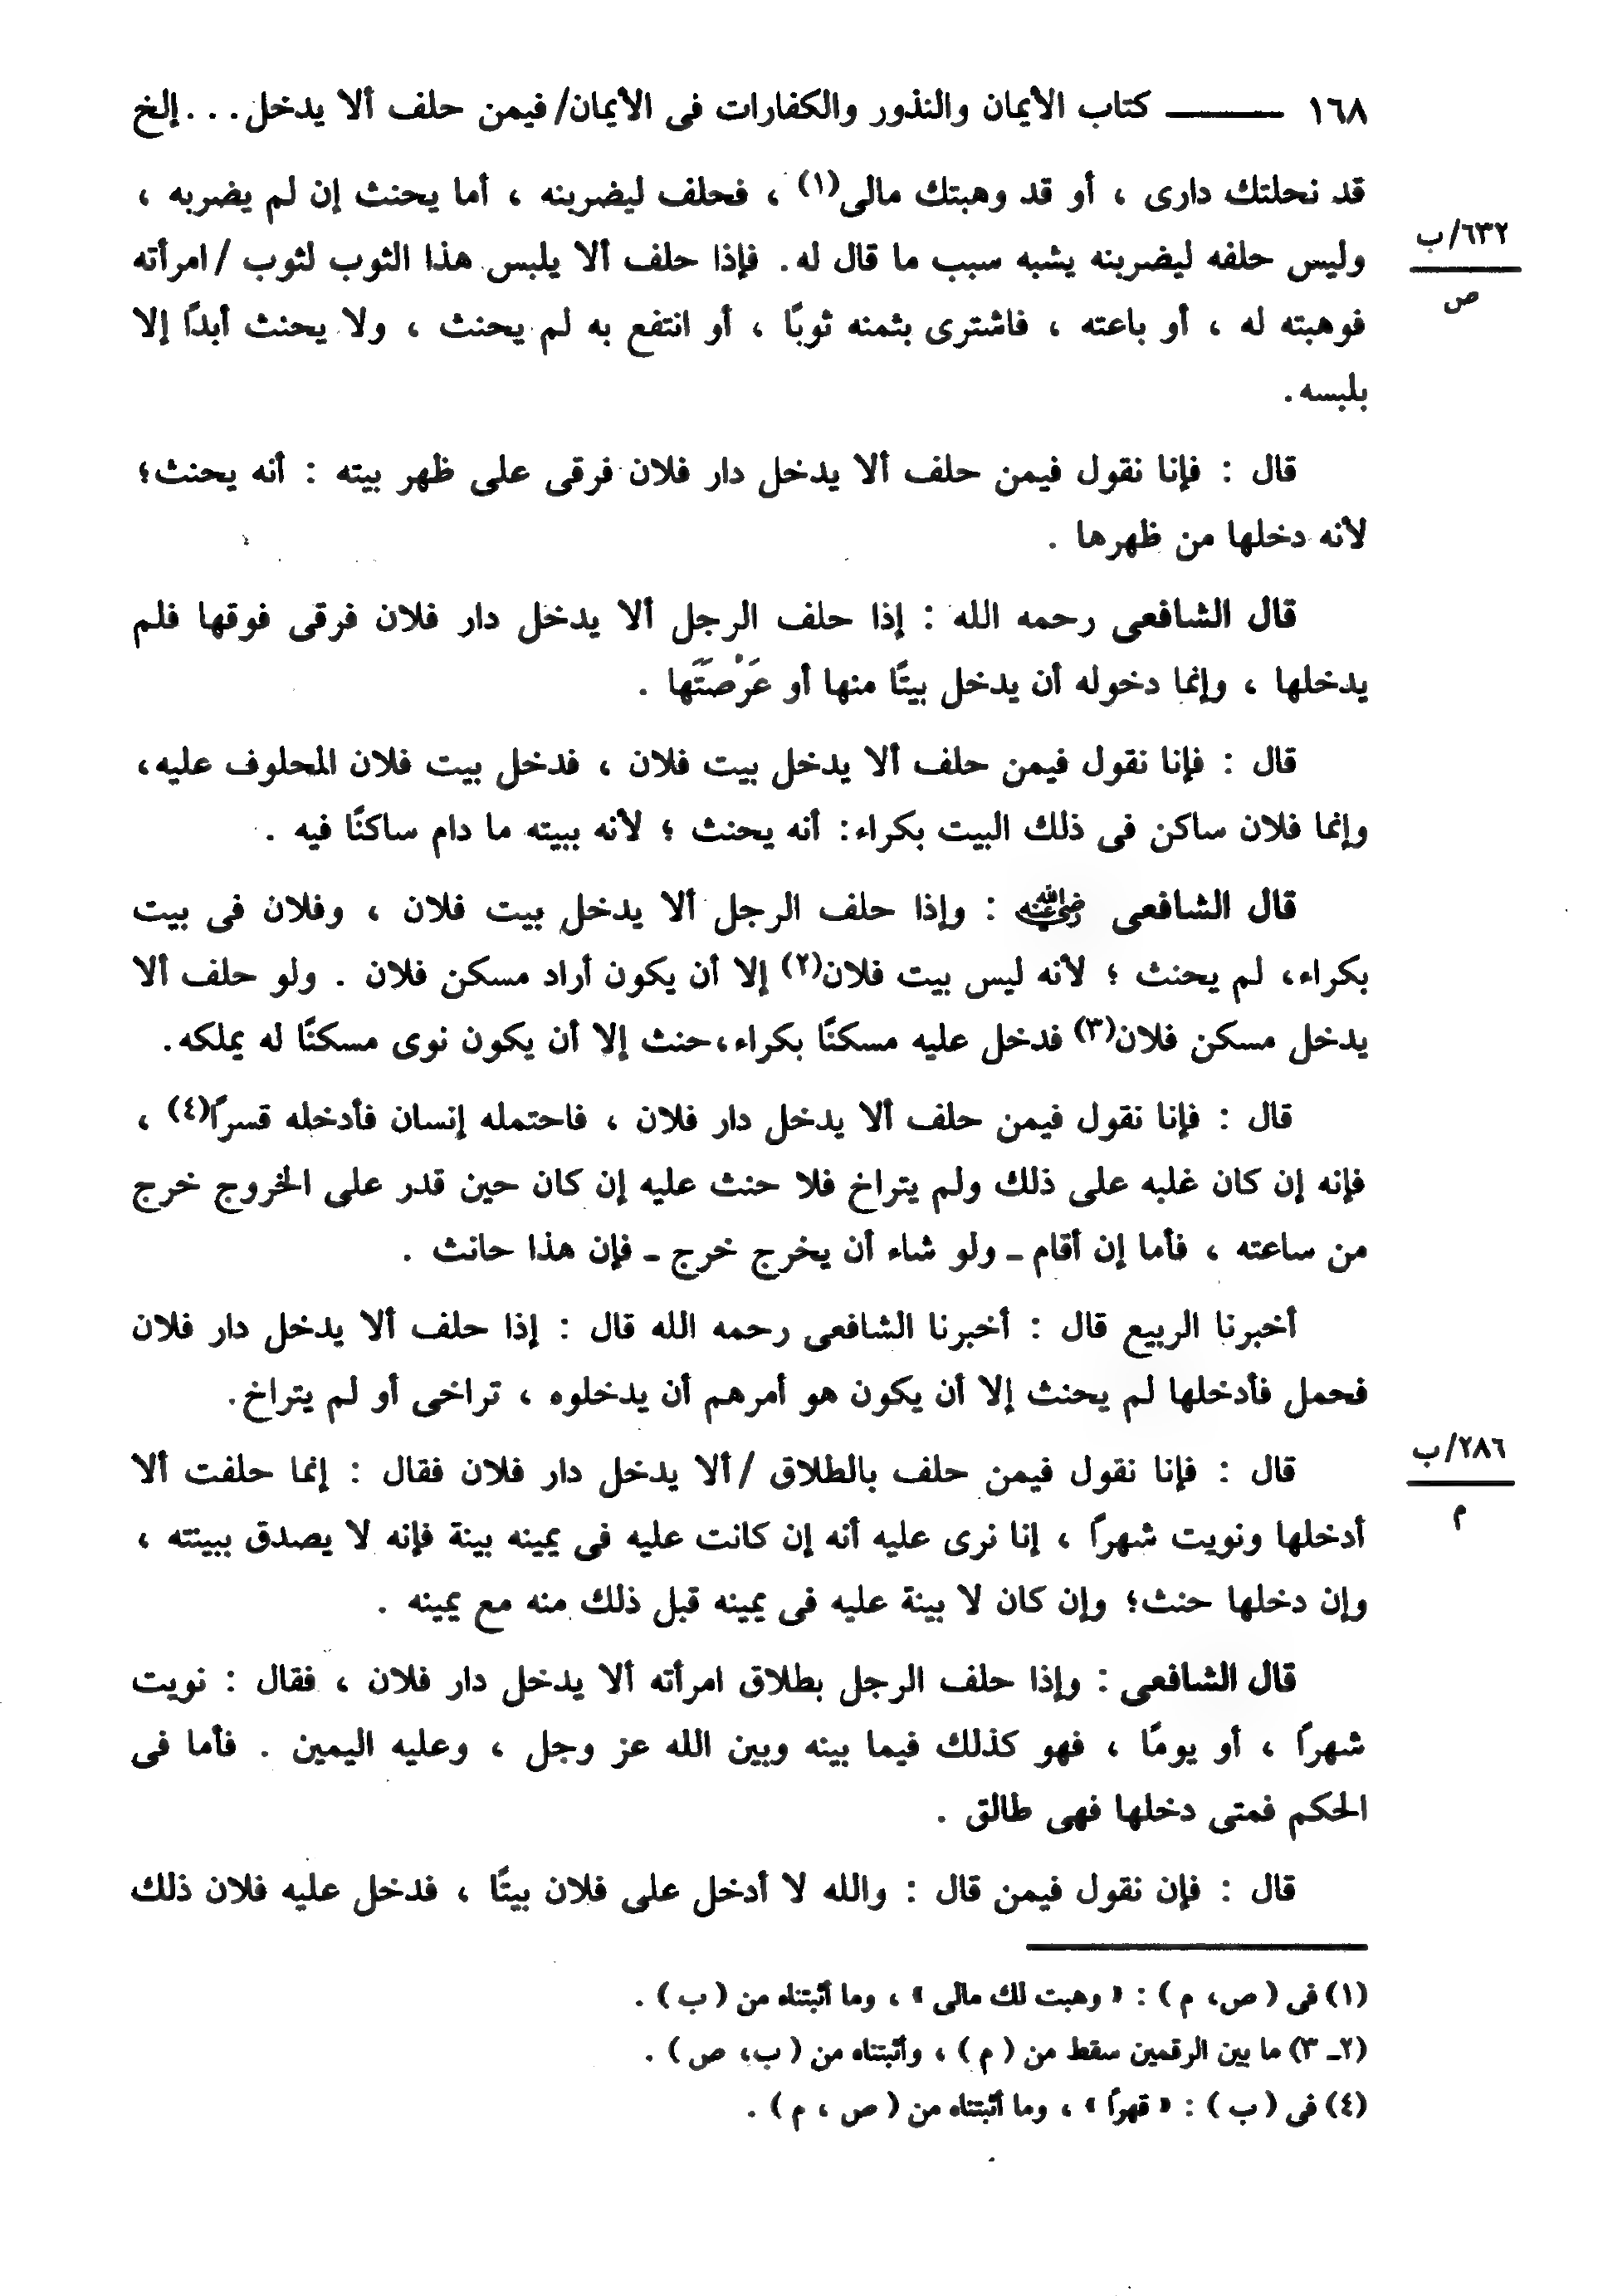 ١٦٨ ——— كتاب الأيمان والنذور والكفارات فى الأيمان/ فيمن حلف ألا يدخل . . . إلخ
قد نحلتك دارى ، أو قد وهبتك مالى(١) ، فحلف ليضربنه ، أما يحنث إن لم يضربه ،
٦٣٢/ب
ص
وليس حلفه ليضربنه يشبه سبب ما قال له. فإذا حلف ألا يلبس هذا الثوب لثوب / امرأته
فوهبته له ، أو باعته ، فاشترى بثمنه ثوبًا ، أو انتفع به لم يحنث ، ولا يحنث أبدًا إلا
بلبسه .
قال : فإنا نقول فيمن حلف ألا يدخل دار فلان فرقى على ظهر بيته : أنه يحنث؛
لأنه دخلها من ظهرها .
قال الشافعى رحمه الله : إذا حلف الرجل ألا يدخل دار فلان فرقى فوقها فلم
يدخلها ، وإنما دخوله أن يدخل بيتًا منها أو عَرْصَتَها .
قال : فإنا نقول فيمن حلف ألا يدخل بيت فلان ، فدخل بيت فلان المحلوف عليه،
وإنما فلان ساكن فى ذلك البيت بكراء: أنه يحنث ؛ لأنه ببيته ما دام ساكنًا فيه .
قال الشافعى رضي الله عنه : وإذا حلف الرجل ألا يدخل بيت فلان ، وفلان فى بيت
بكراء، لم يحنث ؛ لأنه ليس بيت فلان(٢) إلا أن يكون أراد مسكن فلان . ولو حلف ألا
يدخل مسكن فلان(٣) فدخل عليه مسكنًا بكراء،حنث إلا أن يكون نوى مسكنًا له يملكه.
قال : فإنا نقول فيمن حلف ألا يدخل دار فلان ، فاحتمله إنسان فأدخله قسرًا(٤) ،
فإنه إن كان غلبه على ذلك ولم يتراخ فلا حنث عليه إن كان حين قدر على الخروج خرج
من ساعته ، فأما إن أقام ـ ولو شاء أن يخرج خرج ـ فإن هذا حانث .
أخبرنا الربيع قال : أخبرنا الشافعى رحمه الله قال : إذا حلف ألا يدخل دار فلان
فحمل فأدخلها لم يحنث إلا أن يكون هو أمرهم أن يدخلوه ، تراخى أو لم يتراخ.
٢٨٦/ب
م
قال : فإنا نقول فيمن حلف بالطلاق / ألا يدخل دار فلان فقال : إنما حلفت ألا
أدخلها ونويت شهرًا ، إنا نرى عليه أنه إن كانت عليه فى يمينه بينة فإنه لا يصدق ببينته ،
وإن دخلها حنث؛ وإن كان لا بينة عليه فى يمينه قبل ذلك منه مع يمينه .
قال الشافعى : وإذا حلف الرجل بطلاق امرأته ألا يدخل دار فلان ، فقال : نويت
شهرًا ، أو يومًا ، فهو كذلك فيما بينه وبين الله عز وجل ، وعليه اليمين . فأما فى
الحكم فمتى دخلها فهى طالق .
قال : فإن نقول فيمن قال : والله لا أدخل على فلان بيتًا ، فدخل عليه فلان ذلك
(١) فى ( ص، م ) : « وهبت لك مالى » ، وما أثبتناه من ( ب ) .
(٢ـ ٣) ما بين الرقمين سقط من ( م ) ، وأثبتناه من ( ب، ص ) .
(٤) فى ( ب ) : « قهرًا » ، وما أثبتناه من ( ص ، م ) .